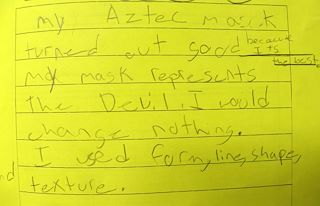 my Aztec mask
turned out good because
Its
the best.
my mask represents
the Devil. I would
change nothing.
I used form, line, shape,
texture.